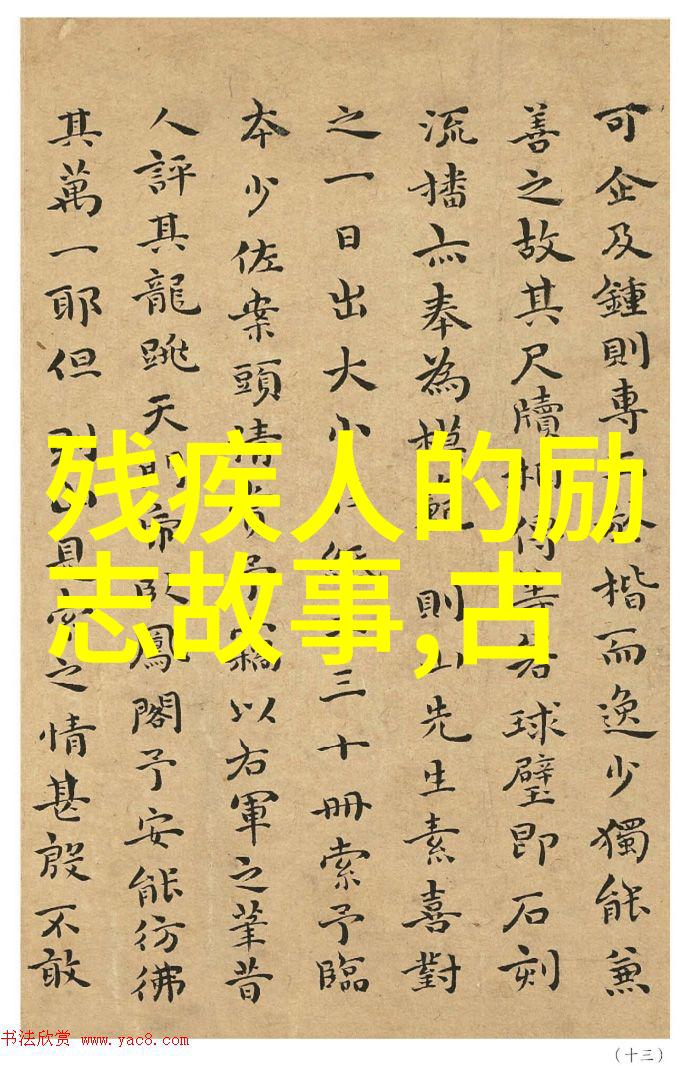 可企及鍾則專工於楷而逸少獨能兼
善之故其尺牘相傳等若球璧即石刻
流播亦奉為模範則山先生素喜對
之一日出大小
三十冊索予臨
本少佐案頭清
以右軍之筆昔
人評其龍跳天門
鳳閣予安能彷彿
其萬一耶但則山見索之情甚殷不敢
残疾人的励
志故事,古
书法欣赏 www.yac8.com
(十三)